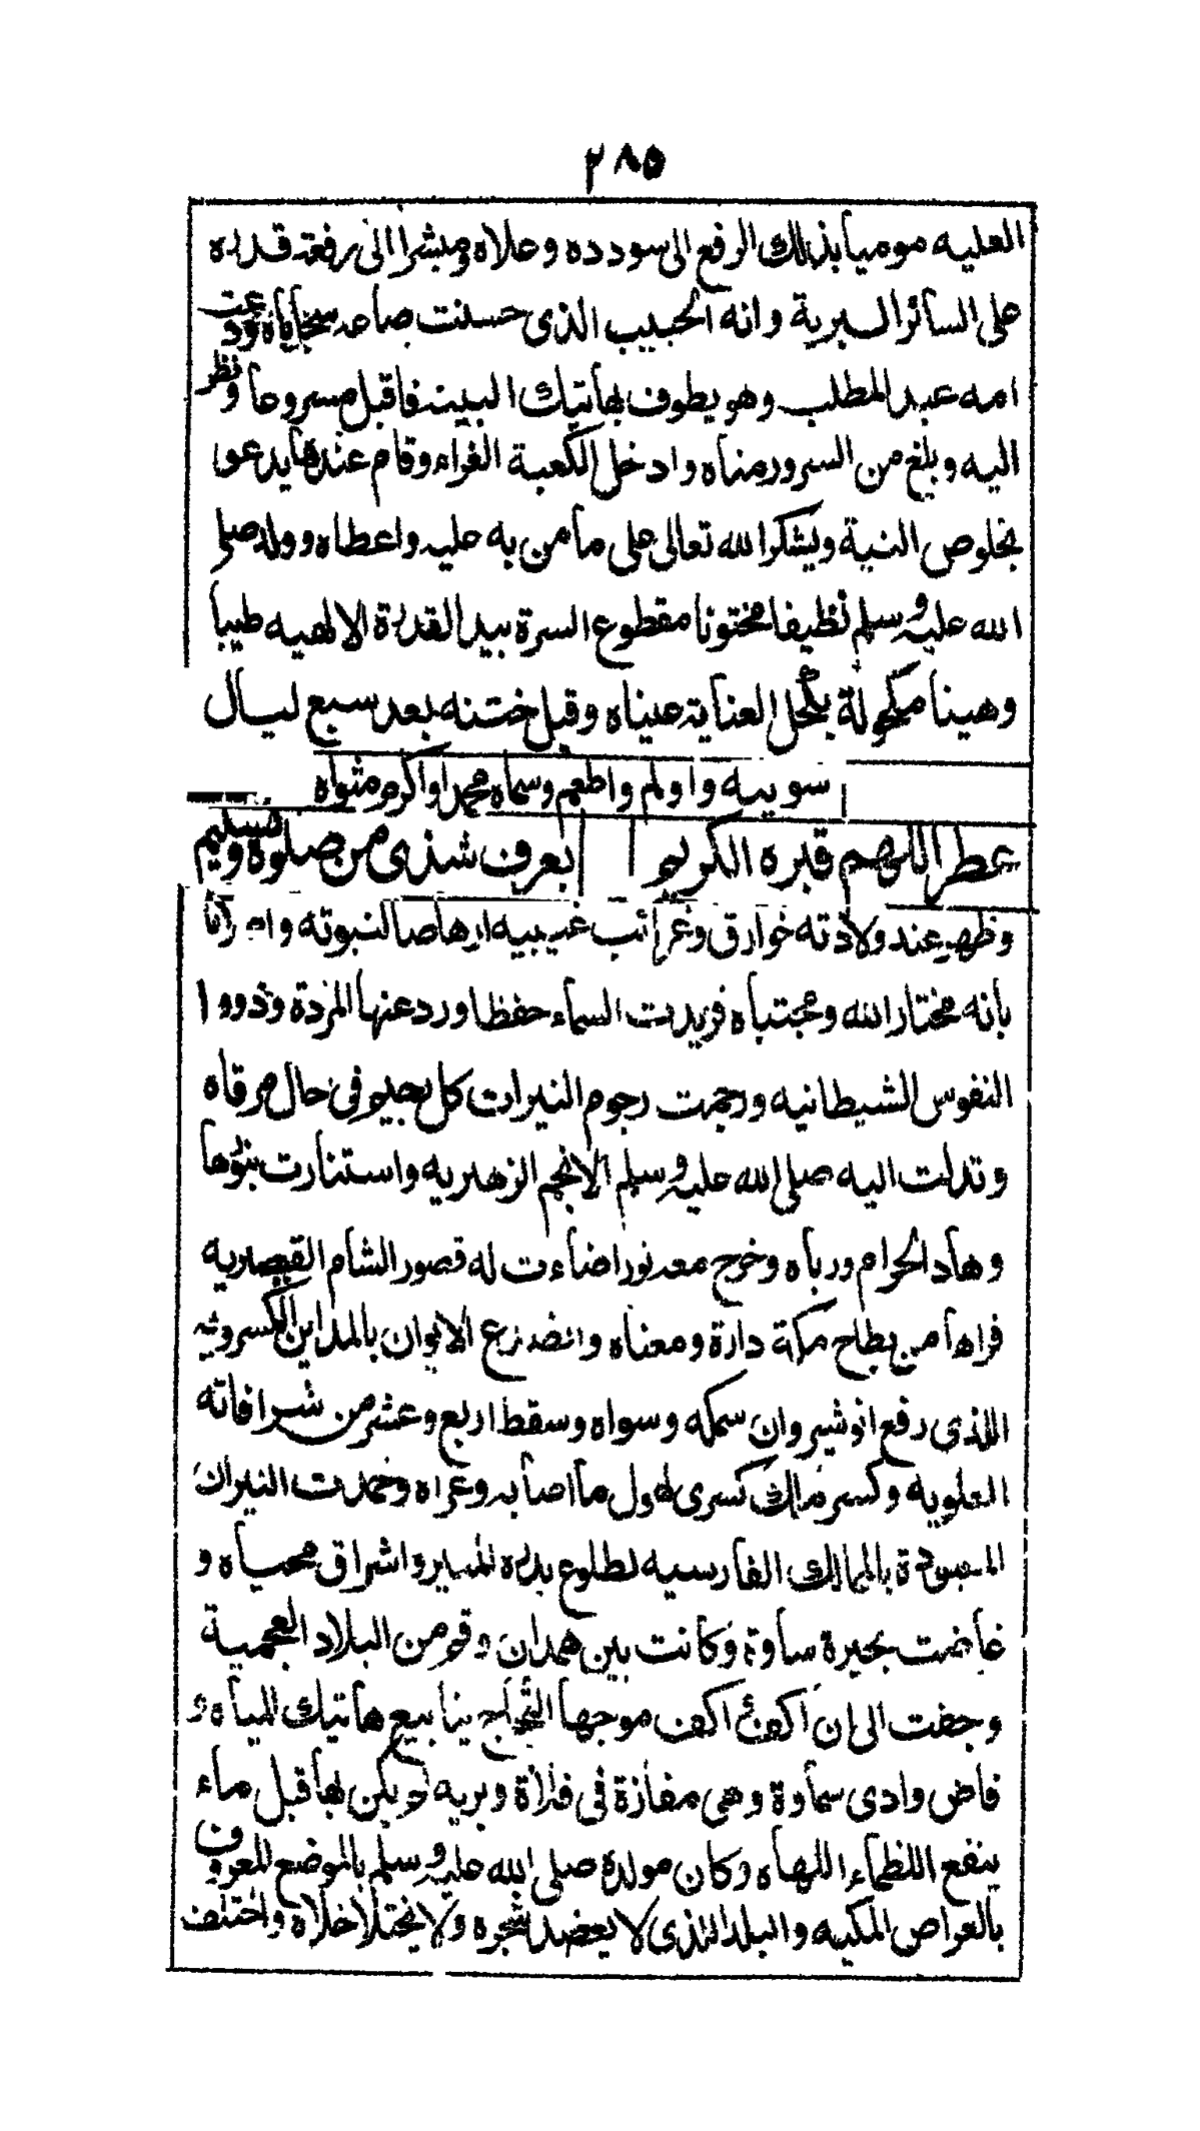 ٢٨٥
العليه مومياً بذالك الرفع الى سودده وعلاه ومبشرا الى رفعة قدره
على السائر البرية وانه الحبيب الذى حسنت صاعه سجاياه ودعت
امه عبد المطلب وهو يطوف بهاتيك البيت فاقبل مسروحاً ونظر
اليه وبلغ من السرور مناه وادخل الكعبة الغراء وقام عندها يدعو
بخلوص النية ويشكر الله تعالى على ما من به عليه واعطاه وولد صلى
الله عليه وسلم نظيفا مختونا مقطوع السرة بيد القدرة الالهيه طيباً
وهينا مكحولة بكحل العناية عيناه وقيل ختنه بعد سبع ليال
سويه واولم واطعم وسماه محمدا واكرم مثواه
عطر اللهم قبره الكريم بعرف شذى من صلوة وتسليم
وظهر عند ولادته خوارق وغرائب غيبيه ارهاصا لنبوته واعـ رانا
بانه مختار الله ومجتباه فزيدت السماء حفظا ورد عنها المردة وذووا
النفوس الشيطانيه ورجمت رجوم النيرات كل رجيم فى حال مرقاه
وتدلت اليه صلى الله عليه وسلم الانجم الزهريه واستنارت بنورها
وهاد الحرام ورباه وخرج معه نور اضاءت له قصور الشام القيصريه
فراها من بطاح مكة دارة ومعناه وانصدع الايوان بالمداين الكسرويه
اللذى رفع انوشيروان سمكه وسواه وسقط اربع وعشر من شرافاته
العلويه وكسر ملك كسرى لهول ما اصابه وعراه وخمدت النيران
المعبودة بالممالك الفارسيه لطلوع بدره المنير واشراق محياه و
غاضت بحيرة ساوة وكانت بين همدان وقم من البلاد العجمية
وجفت الى ان اكف اكف موجها الثجاج ينابيع هاتيك المياه و
فاض وادى سماوة وهى مفازة فى فلاة وبريه لم يكن بها قبل ماء
ينفع اللظماء اللهاه وكان مولده صلى الله عليه وسلم بالموضع المعروف
بالعراص المكيه والبلد اللذى لا يعضد شجره ولا يختلا خلاه واختلف